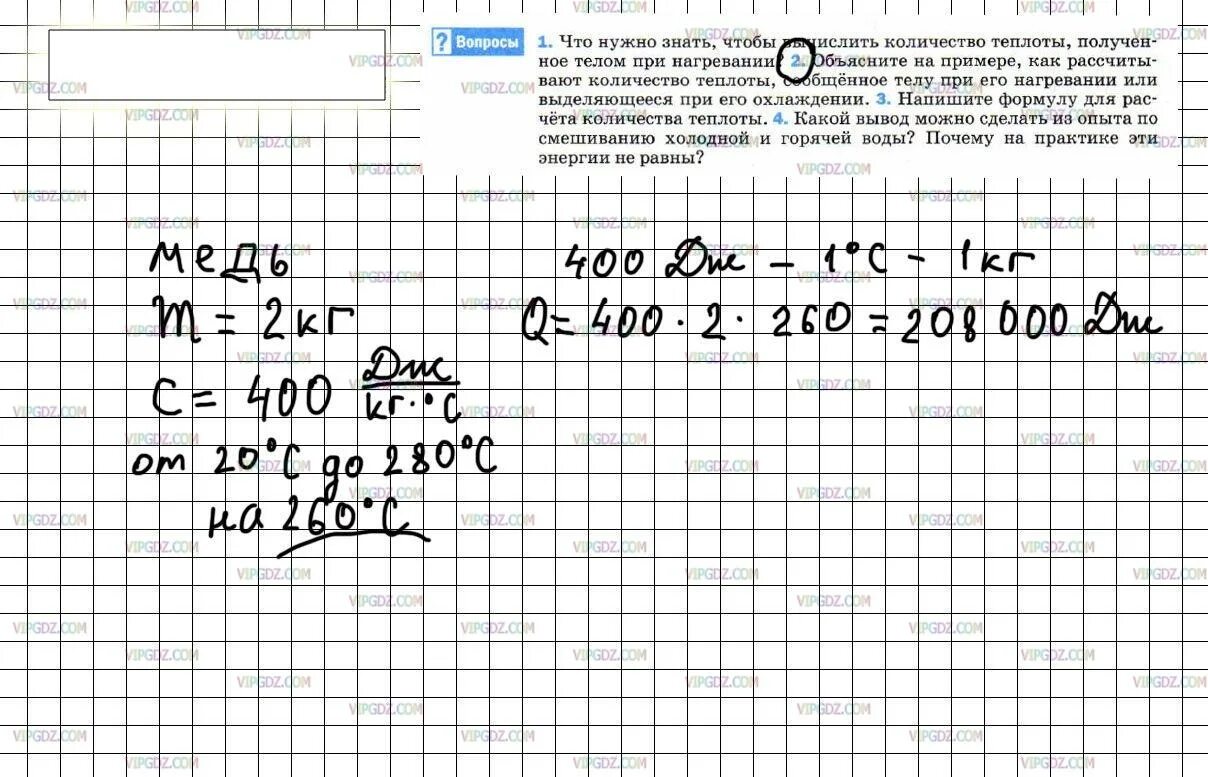 ? Вопросы
1. Что нужно знать, чтобы вычислить количество теплоты, получен-
ное телом при нагревании? 2. Объясните на примере, как рассчиты-
вают количество теплоты, сообщённое телу при его нагревании или
выделяющееся при его охлаждении. 3. Напишите формулу для рас-
чёта количества теплоты. 4. Какой вывод можно сделать из опыта по
смешиванию холодной и горячей воды? Почему на практике эти
энергии не равны?
медь
m = 2 кг
c = 400 Дж/кг·°C
от 20°C до 280°C
на 260°C
400 Дж – 1°C – 1 кг
Q = 400 · 2 · 260 = 208 000 Дж
VIPGDZ.COM